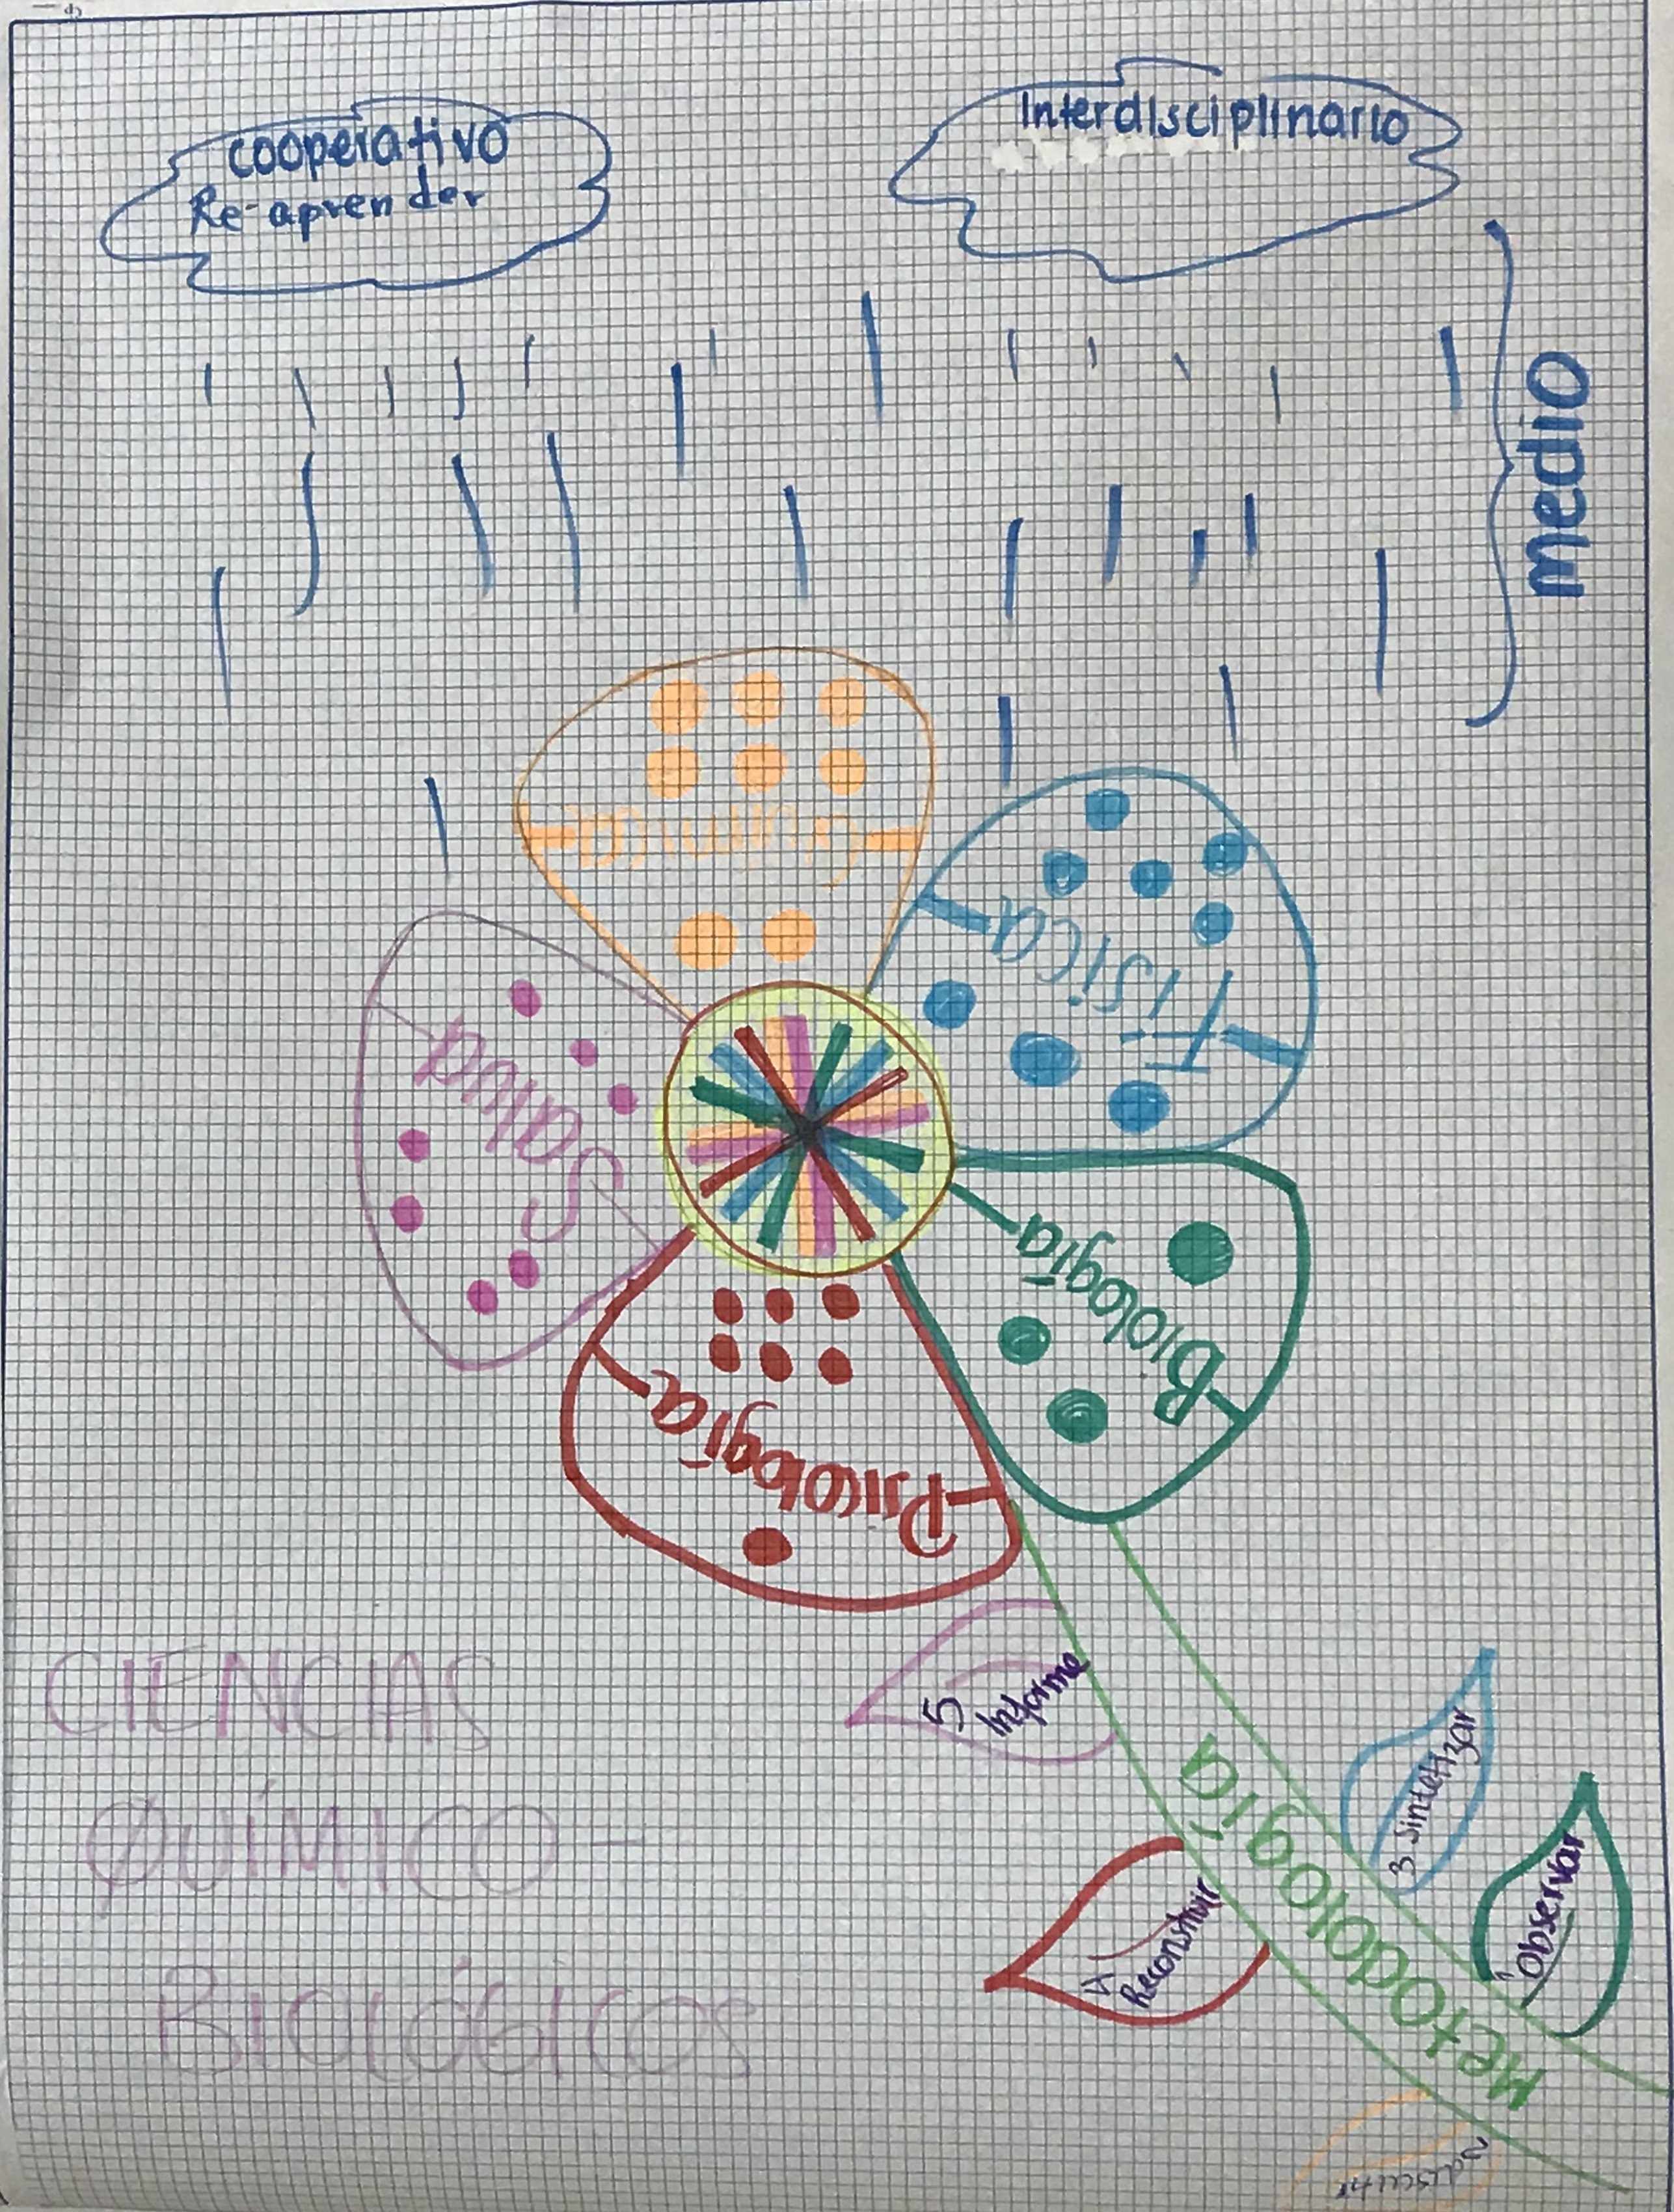 cooperativo
Re-aprender
Interdisciplinario
medio
Química
Física
Salud
Biología
Psicología
CIENCIAS
QUÍMICO-
BIOLÓGICOS
5
Informe
3 sintetizar
1 Observar
4
Reconstruir
Metodología
2 discutir